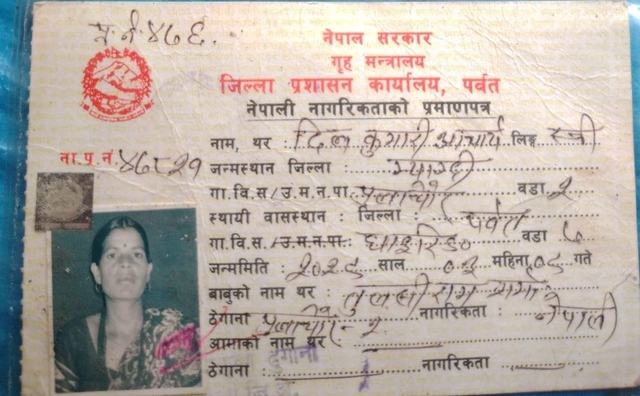 प्र. नं. ४७६.
नेपाल सरकार
गृह मन्त्रालय
जिल्ला प्रशासन कार्यालय, पर्वत
नेपाली नागरिकताको प्रमाणपत्र
नाम, थर : दिल कुमारी आचार्य लिङ्ग स्त्री
ना.प्र.नं. ४७८२१
जन्मस्थान जिल्ला : म्याग्दी
गा.वि.स./उ.म.न.पा. वडा २
स्थायी वासस्थान : जिल्ला : पर्वत
गा.वि.स./उ.म.न.पा. वडा ७
जन्ममिति : साल महिना गते
बाबुको नाम थर : तुलसीराम शर्मा
ठेगाना २ नागरिकता : नेपाली
आमाको नाम थर
ठेगाना
ठेगाना : नागरिकता